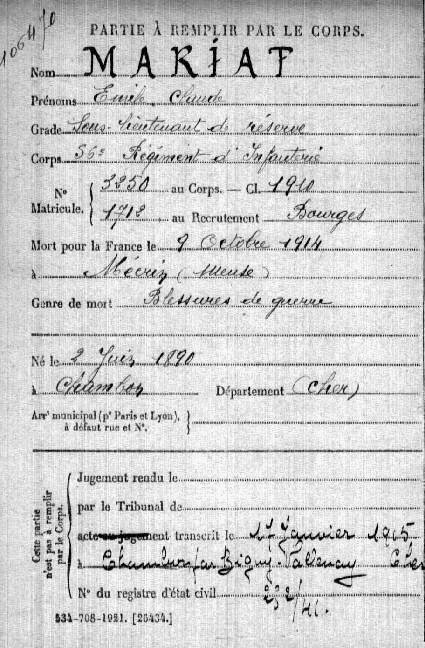 10647
PARTIE À REMPLIR PAR LE CORPS.
Nom MARIAT
Prénoms Emile Claude
Grade Sous-lieutenant de réserve
Corps 56e Régiment d'Infanterie
N° Matricule. 3250 au Corps. — Cl. 1910
1712 au Recrutement Bourges
Mort pour la France le 9 Octobre 1914
à Mécrin (Meuse)
Genre de mort Blessures de guerre
Né le 2 Juin 1890
à Chambon Département (Cher)
Arrt municipal (pr Paris et Lyon), à défaut rue et N°.
Cette partie n'est pas à remplir par le Corps.
Jugement rendu le
par le Tribunal de
acte ou jugement transcrit le Janvier 1915
à par Bigny-Vallenay Cher
N° du registre d'état civil
534-708-1921. [26434.]